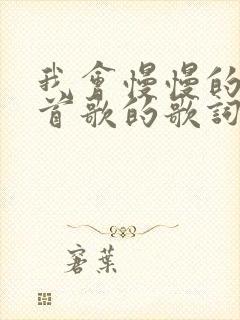 我會慢慢的
首歌的歌詞
窗葉